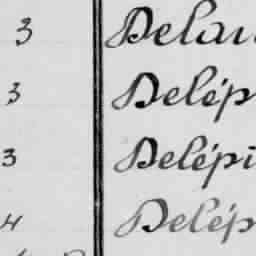 3 Delau
3 Delép
3 Delépi
4 Delép